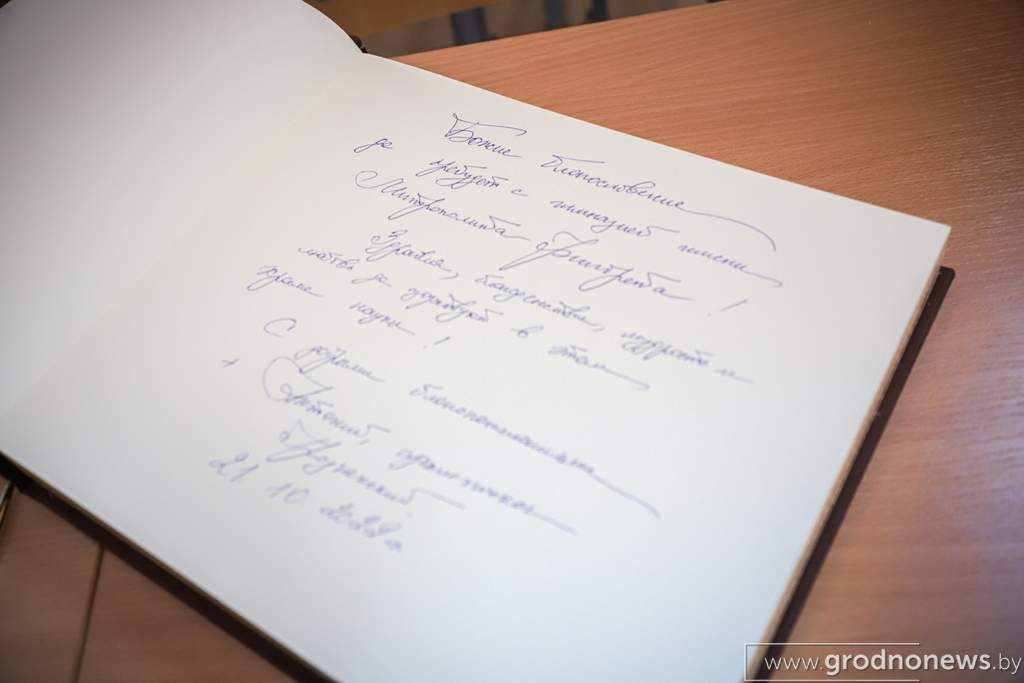 Божие благословение
да пребудет с гимназией имени
Митрополита Филарета!
Здравие, благоденствие, мудрость и
молитва да царствуют в этом
храме науки!
С добрыми благопожеланиями
+ Антоний, архиепископ
Гродненский
21 10 2022 г.
www.grodnonews.by